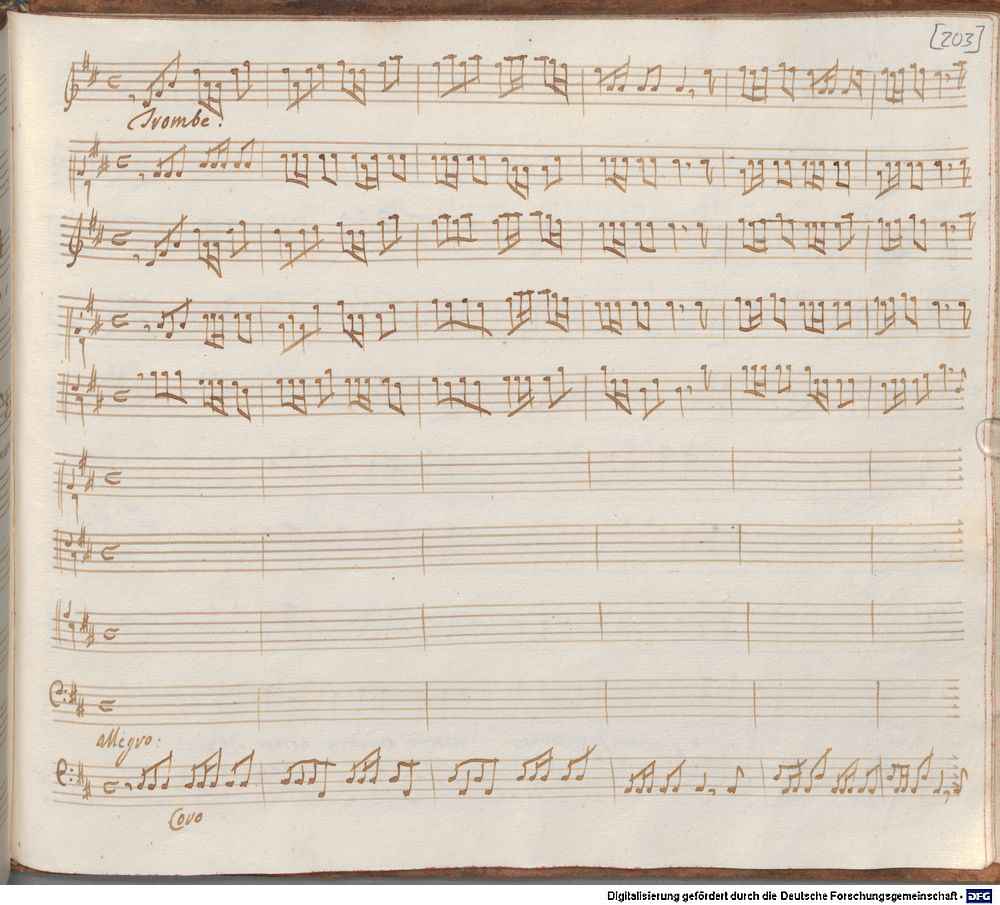 [203]
Trombe:
allegro:
Coro
Digitalisierung gefördert durch die Deutsche Forschungsgemeinschaft - DFG